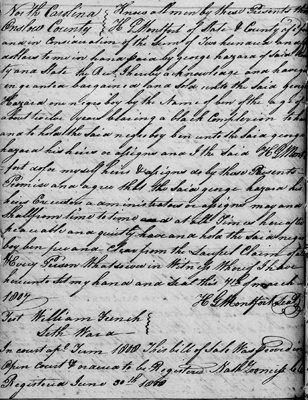 North Carolina
Onslow County
Know all men by these Presents
H G Montfort of State & County of
and in Consideration of the Sum of Two hundred and
dollars to me in hand paid by george hazard of Said
ty and State the I hereby acknowledge and have
en granted bargained and Sold unto the Said george
Hazard one negro boy by the Name of ben of the age
years bearing a black Complexion to have
and to hold the Said negro boy ben unto the Said george
hazard his heirs or assigns and I the Said H G Mon
fort do for myself heirs & assigns do by these Presents
Promise and agree that the Said george hazard his
heirs Executors administrators or assigns may and
Shall from time to time and at all times hereafter
Peaceably and quietly had and hold the Said negro
boy ben free and Clear from the Lawful Claim of
Every Person Whatsoever in Witness Whereof I have
hereunto Set my hand and Seal this 4th of march
H G Montfort Seal
Test William French
Seth Ward
In court Term 1810 This bill of Sale Was Proved in
Open Court & ordered to be Registered
Registered June 30th 1810